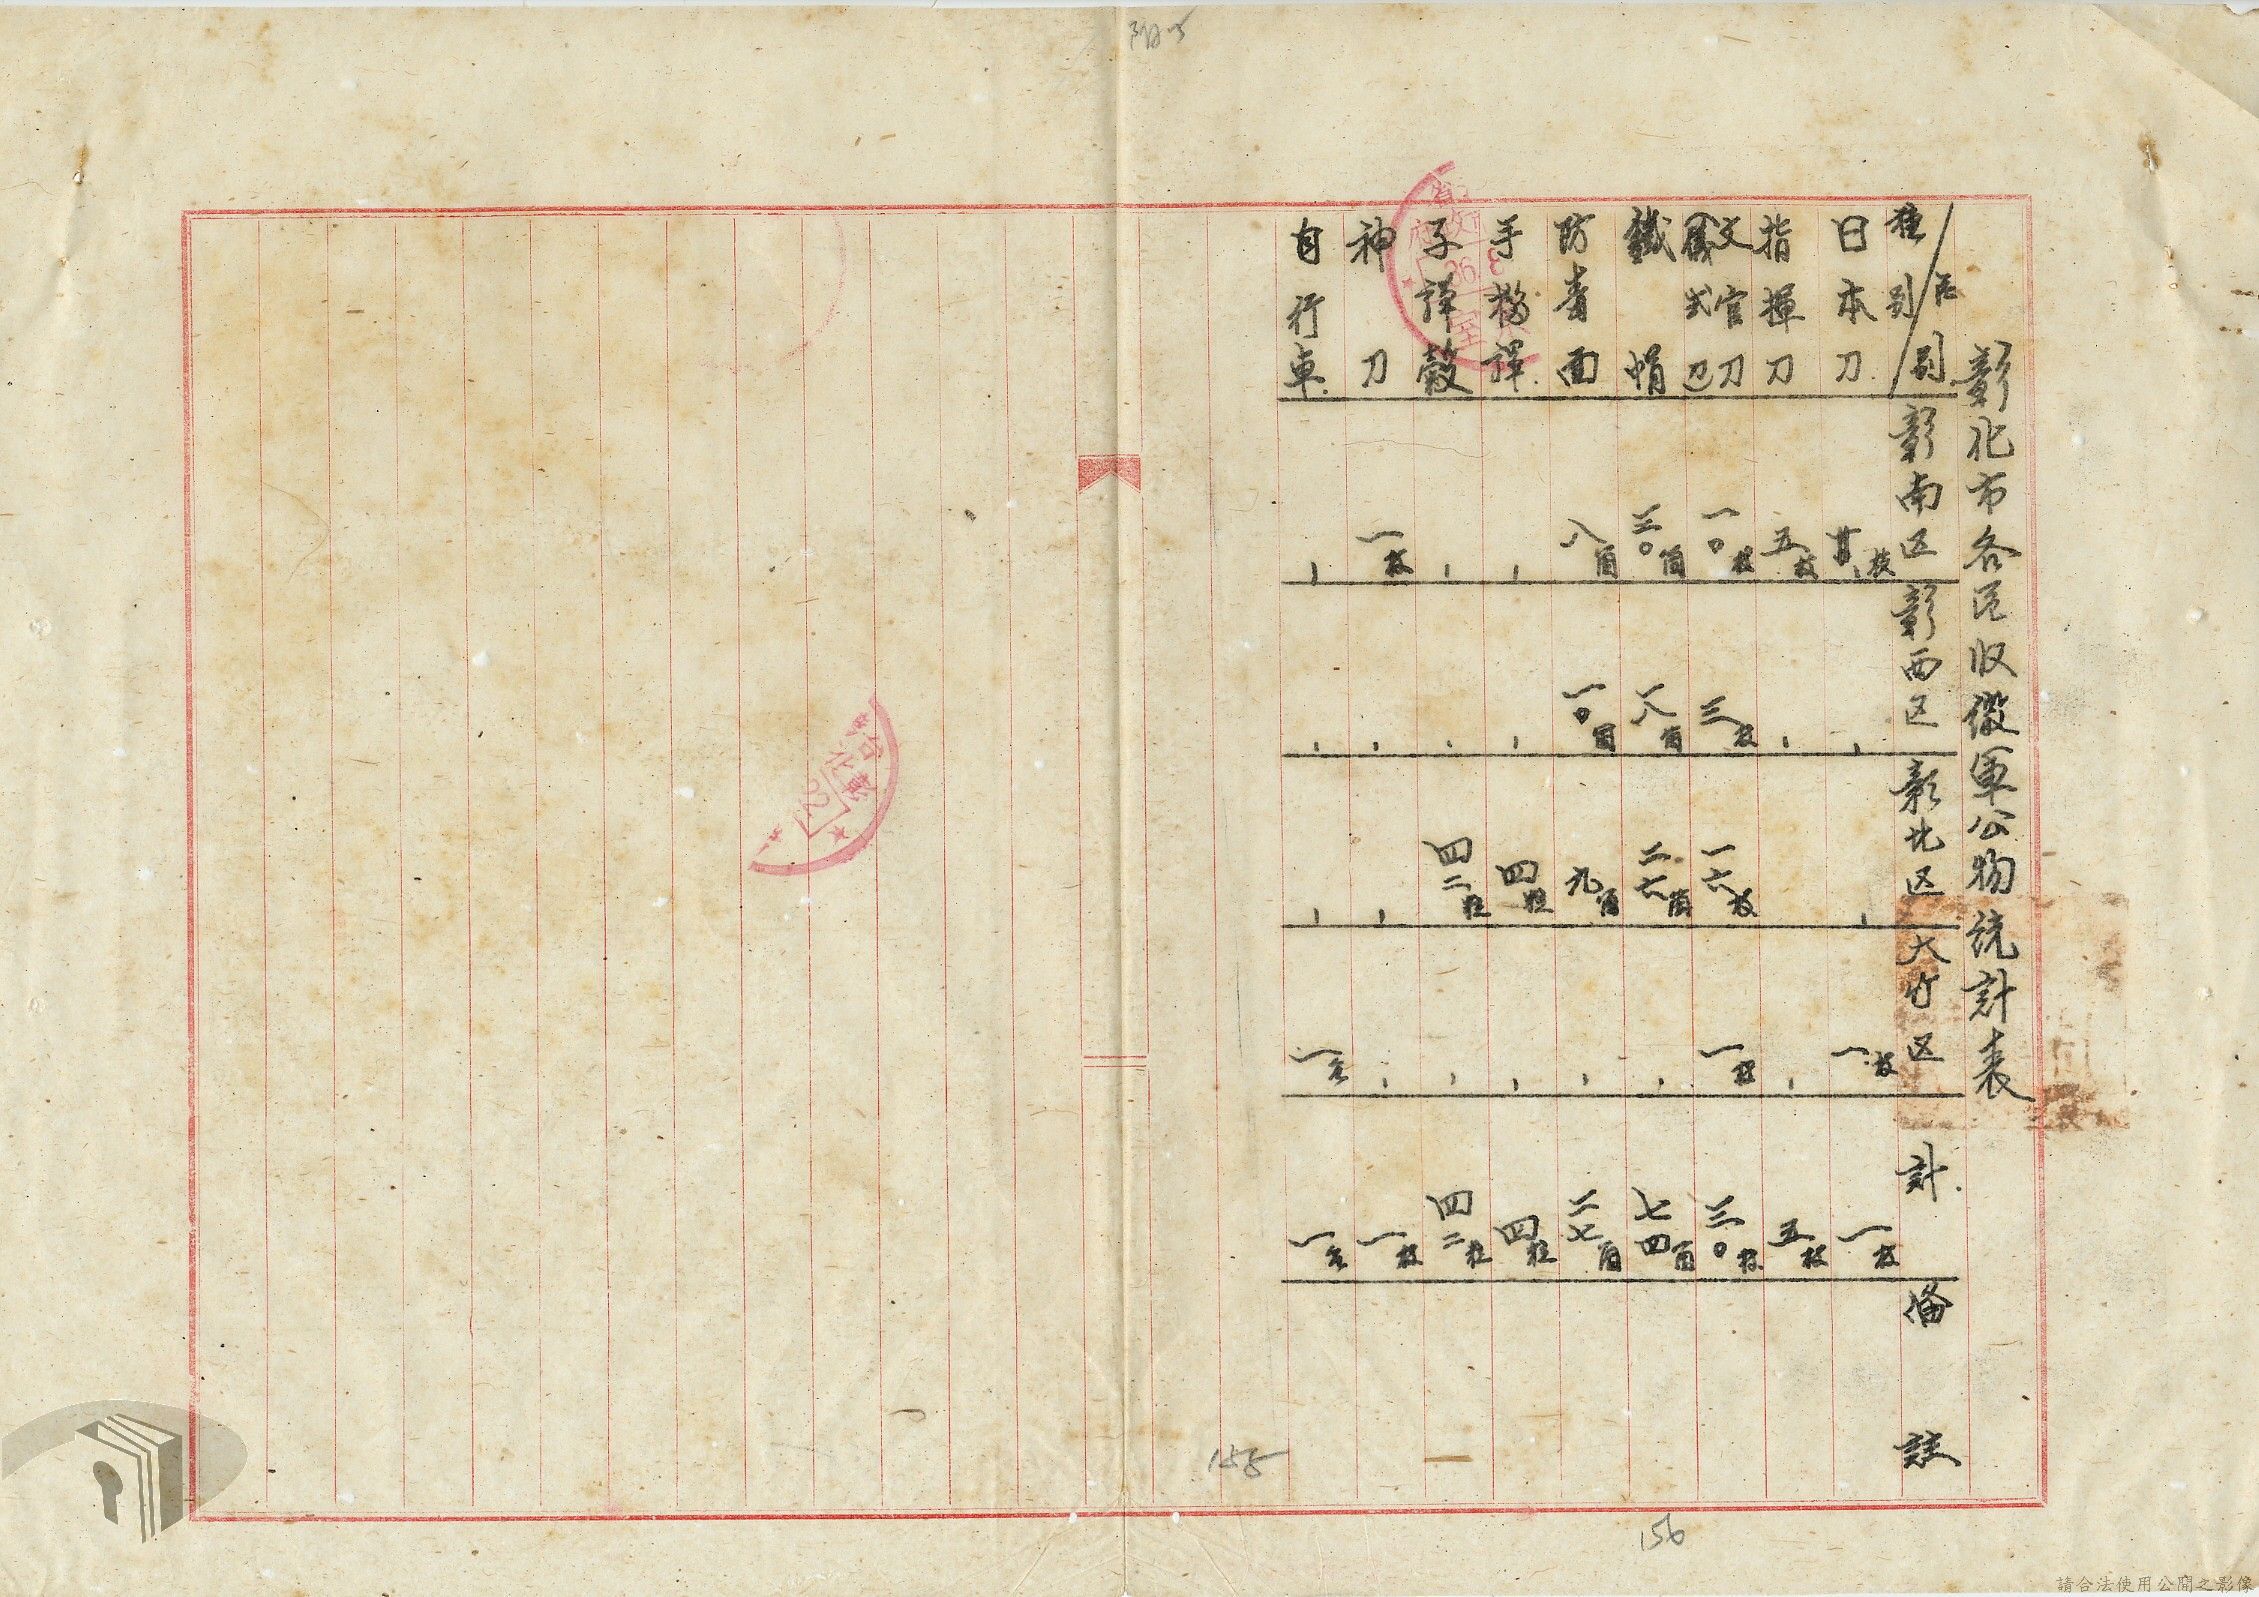 彰化市各区收繳軍公物統計表
種別/区別 彰南区 彰西区 彰北区 大竹区 計 備註
日本刀 廿枚 、 、 一枚 一枚
指揮刀 五枚 、 、 五枚
文官刀儀式刀 一〇枚 三枚 一六枚 一枚 三〇枚
鐵帽 三〇個 一八個 二六個 、 七四個
防毒面 八個 一〇個 九個 、 二七個
手榴彈 、 、 四粒 、 四粒
子彈殼 、 、 四二粒 、 四二粒
神刀 一枚 、 、 、 一枚
自行車 、 、 、 一台 一台
155
156
請合法使用公開之影像